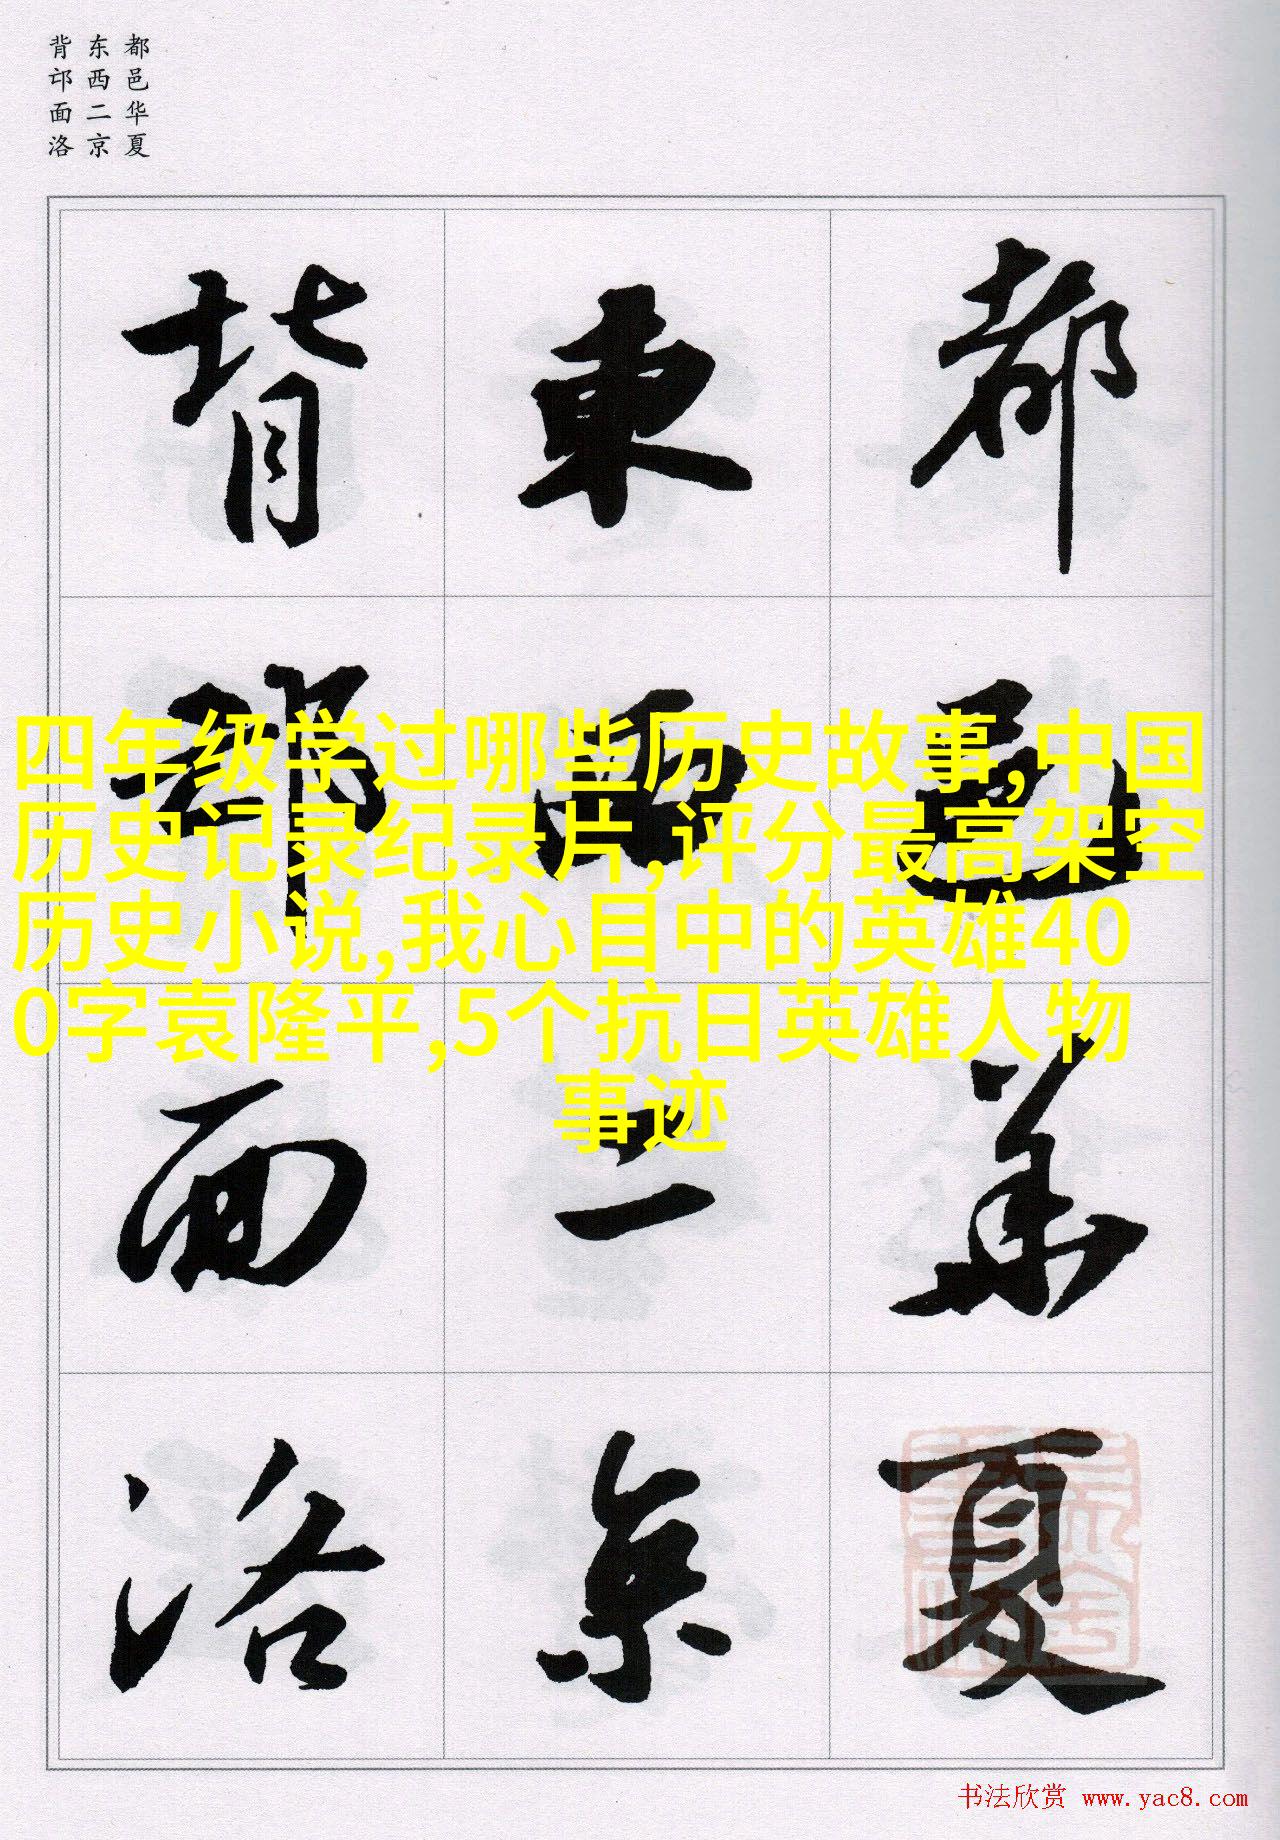 都邑华夏
东西二京
背邙面洛
都邑華夏
東西二京
背邙面洛
四年级学过哪些历史故事,中国
历史记录纪录片,评分最高架空
历史小说,我心目中的英雄40
0字袁隆平,5个抗日英雄人物
事迹
书法欣赏 www.yac8.com